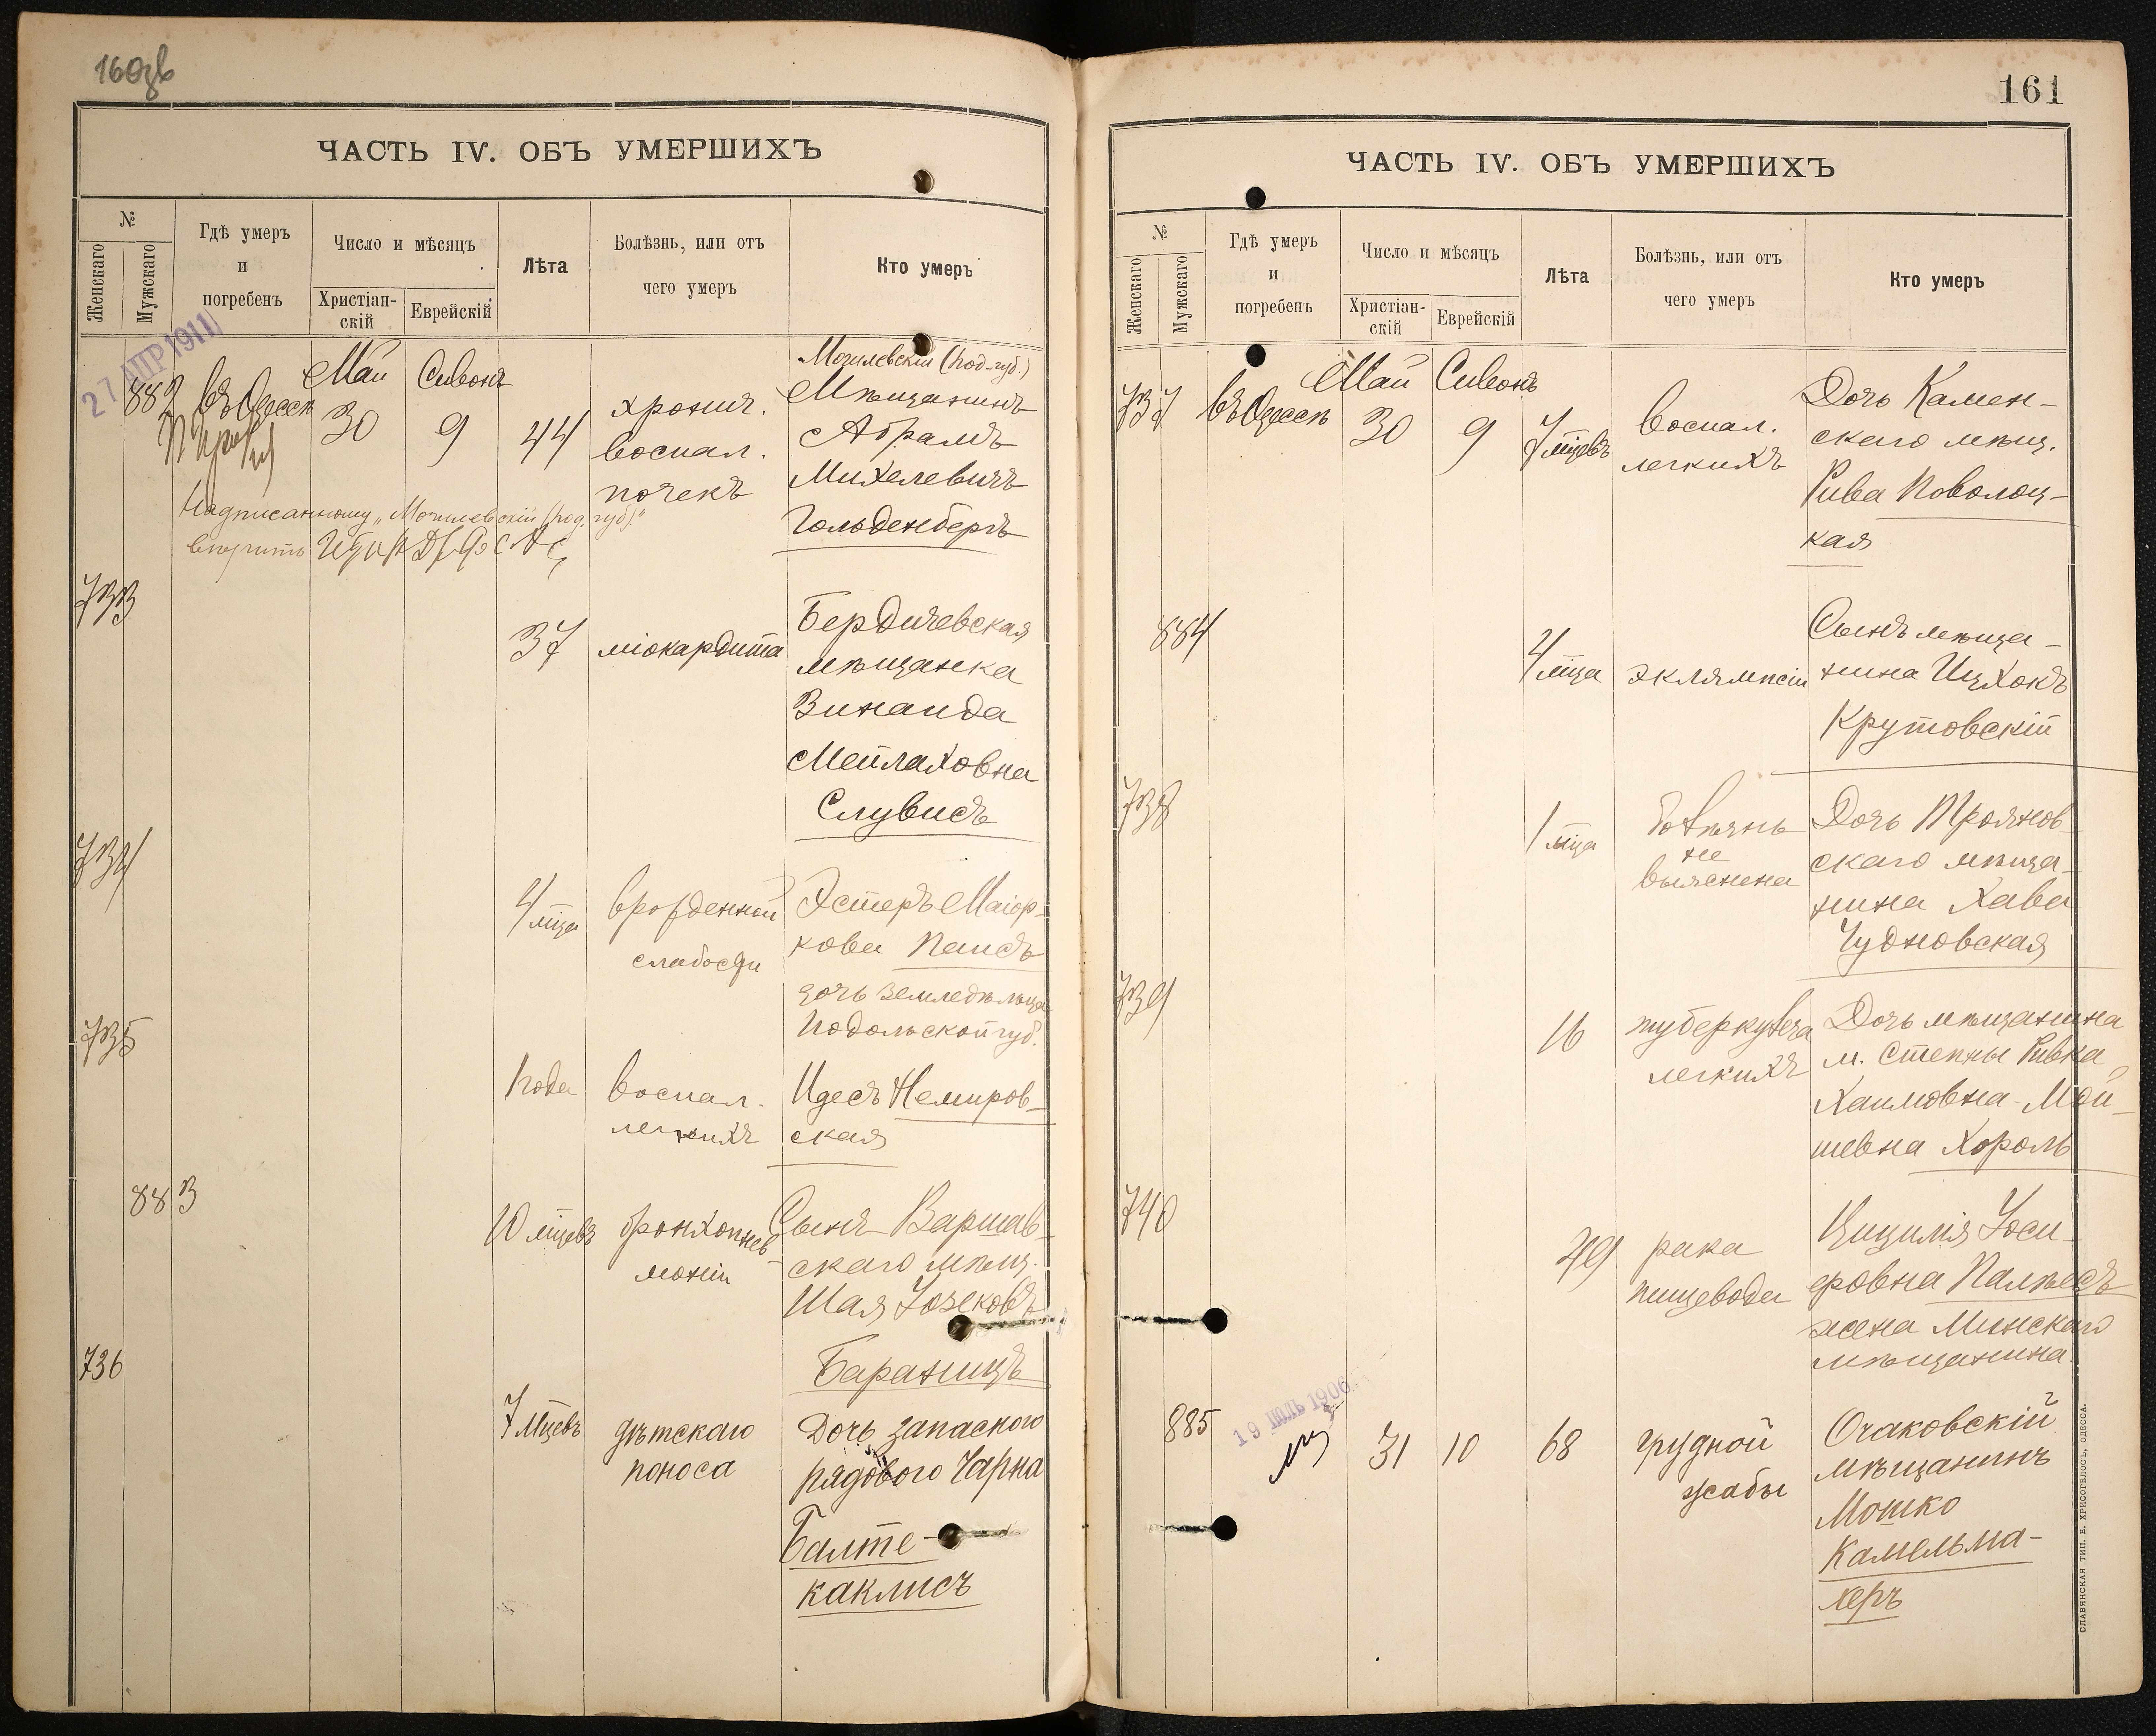 ЧАСТЬ IV. ОБЪ УМЕРШИХЪ
№
Женскаго
Мужскаго
Гдѣ умеръ
и
погребенъ
Число и мѣсяцъ
Христіан-
скій
Еврейскій
Лѣта
Болѣзнь, или отъ
чего умеръ
Кто умеръ
27 АПР 1911
882
въ Одессѣ
Май
30
Сивонъ
9
44
хронич.
воспал.
почекъ
Могилевскій (под. губ.)
Мѣщанинъ
Абрамъ
Михелевичъ
Гольденбергъ
Надписанному „Могилевскій (под. губ)."
вѣрить
733
37
міокардита
Бердичевская
мѣщанка
Зинаида
Мейлаховна
Слувисъ
734
4 мца
врожденной
слабости
Эстеръ Маіор-
кова Паисъ
дочь земледѣльца
Подольской губ.
735
1 года
воспал.
легкихъ
Идесъ Немиров-
ская
883
10 мцевъ
бронхопнев-
моніи
Сынъ Варшав-
скаго мѣщ.
Шая Іозековъ
Бараницъ
736
7 мцевъ
дѣтскаго
поноса
Дочь запаского
рядового Чарна
Балте-
каклисъ
161
ЧАСТЬ IV. ОБЪ УМЕРШИХЪ
№
Женскаго
Мужскаго
Гдѣ умеръ
и
погребенъ
Число и мѣсяцъ
Христіан-
скій
Еврейскій
Лѣта
Болѣзнь, или отъ
чего умеръ
Кто умеръ
737
въ Одессѣ
Май
30
Сивонъ
9
7 мцевъ
воспал.
легкихъ
Дочь Камен-
скаго мѣщ.
Рива Поволоц-
кая
884
4 мца
эклямпсіи
Сынъ мѣща-
нина Ицхокъ
Крутовскій
738
1 мца
болѣзнь
не
выяснена
Дочь Троянов-
скаго мѣща-
нина Хава
Чудновская
739
16
туберкулеза
легкихъ
Дочь мѣщанина
м. Степны Ривка
Хаимовна-Мой-
шевна Король
740
49
рака
пищевода
Цицилія Іоси-
фовна Палѣесъ
жена Минскаго
мѣщанина
885
19 ІЮЛЬ 1906
31
10
68
грудной
жабы
Очаковскій
мѣщанинъ
Мошко
Камельма-
херъ
СЛАВЯНСКАЯ ТИП. Е. ХРИСОГЕЛОСЪ, ОДЕССА.